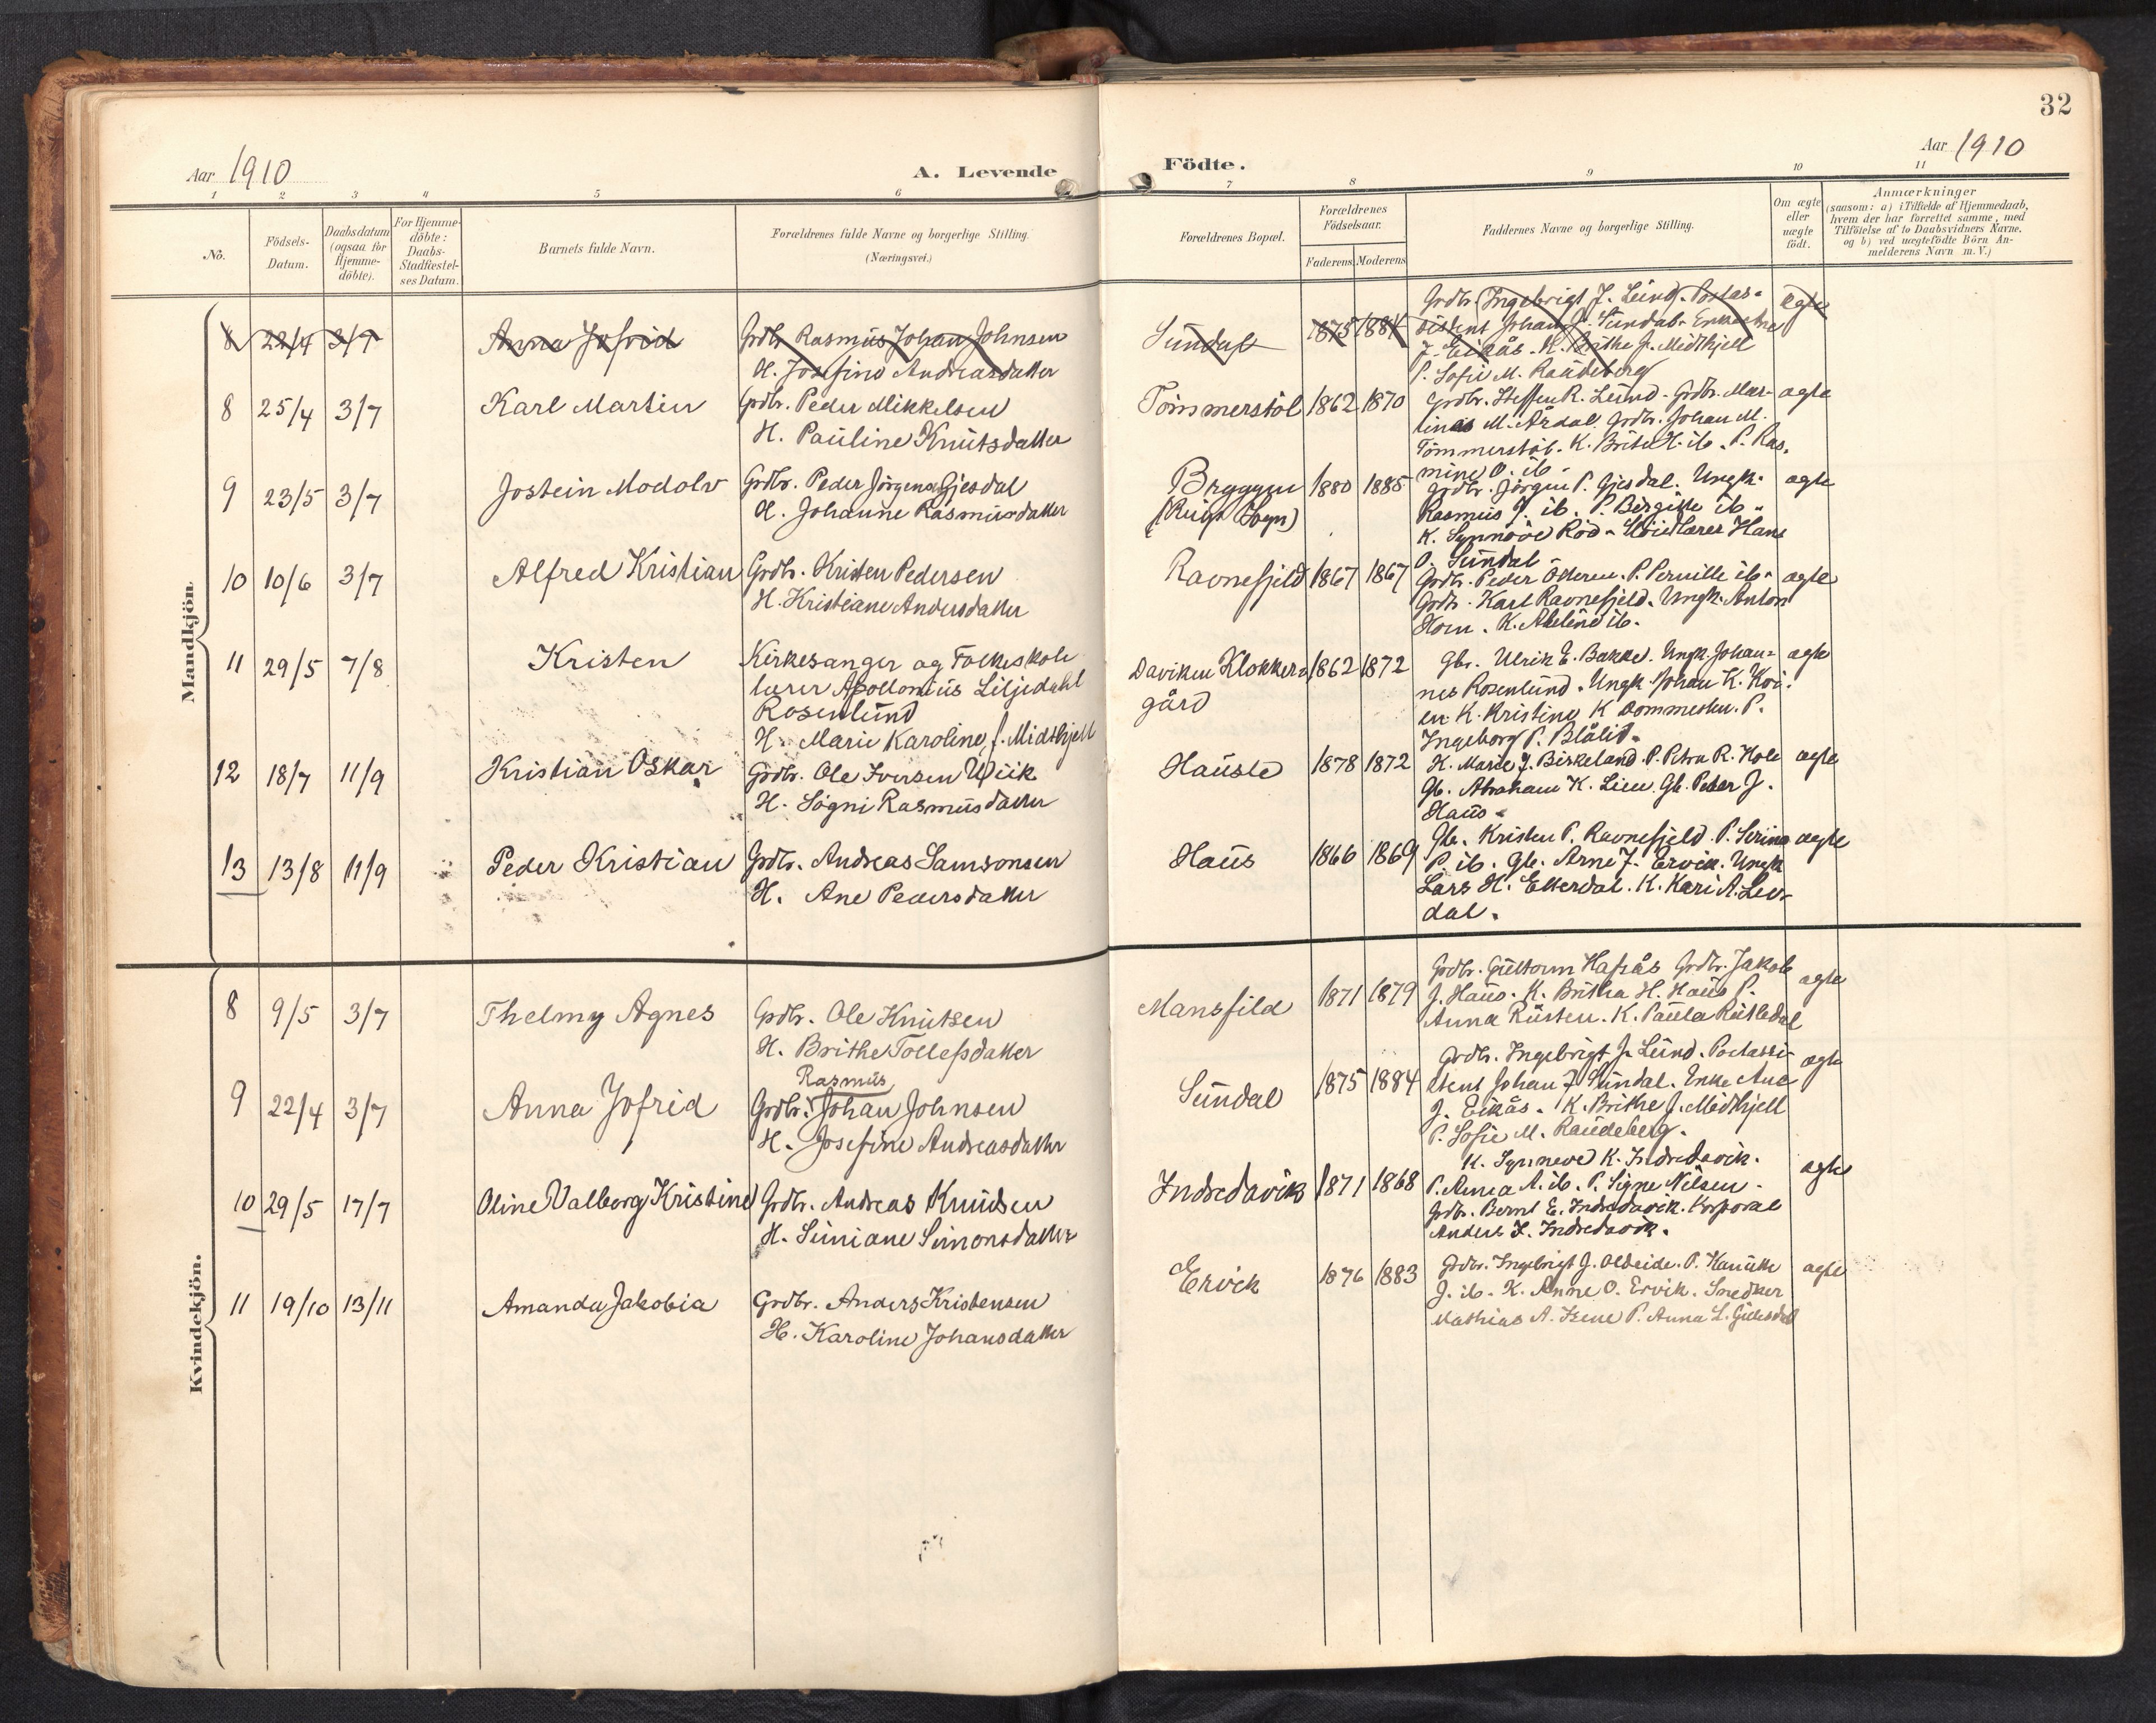 32
Aar 1910
A. Levende Födte.
Aar 1910
1 2 3 4 5 6 7 8 9 10 11
No.
Födsels-
Datum.
Daabsdatum
(ogsaa for
Hjemme-
döbte).
For Hjemme-
döbte:
Daabs-
Stadfæstel-
ses Datum.
Barnets fulde Navn.
Forældrenes fulde Navne og borgerlige Stilling.
(Næringsvei.)
Forældrenes Bopæl.
Forældrenes
Födselsaar.
Faderens. Moderens.
Faddernes Navne og borgerlige Stilling.
Om ægte
eller
uægte
födt.
Anmærkninger
(saasom: a) i Tilfælde af Hjemmedaab,
hvem der har forrettet samme, med
Tilföielse af to Daabsvidners Navne,
og b) ved uægtefödte Börn An-
melderens Navn m. V.)
Mandkjön.
8 22/4 3/7 Anna Jofrid
Grdbr. Rasmus Johan Johnsen
H. Josefine Andreasdatter
Sundal 1875 1884
Grdbr. Ingebrigt J. Leind. Postas-
sistent Johan J. Sundal. Enke Ane
J. Eikås. K. Brithe J. Midthjell
P. Sofie M. Raudeberg
ægte
8 25/4 3/7 Karl Martin
Grdbr. Peder Mikkelsen
H. Pauline Knutsdatter
Tömmerstöl 1862 1870
Grdbr. Steffen R. Leind. Grdbr. Mar-
tinus M. Årdal. Grdbr. Johan M.
Tömmerstöl. K. Brite H. ib. P. Ras-
mine O. ib.
ægte
9 23/5 3/7 Jostein Modolv
Grdbr. Peder Jörgensen Gjesdal
H. Johanne Rasmusdatter
Bryggen 1880 1885
Grdbr. Jörgen P. Gjesdal. Ungk.
Rasmus J. ib. P. Bergitte ib.
K. Synnöve Röd. Slöidlærer Hans
O. Sundal
ægte
10 10/6 3/7 Alfred Kristian
Grdbr. Kristen Pedersen
H. Kristiane Andersdatter
Ravnefjeld 1867 1867
Grdbr. Peder Otteren. P. Pernille ib.
Grdbr. Karl Ravnefjeld. Ungk. Anton
Horn. K. Abeline ib.
ægte
11 29/5 7/8 Kristen
Kirkesanger og Folkeskole
lærer Apollonius Liljedahl
Rosenlund
H. Marie Karoline f. Midthjell
Daviken Klokker-
gård
1862 1872
Gbr. Ulrik E. Bakke. Ungk. Johan-
nes Rosenlund. Ungk. Johan K. Kvi-
en. K. Kristine K Dommesten. P.
Ingeborg P. Blålid.
ægte
12 18/7 11/9 Kristian Oskar
Grdbr. Ole Iversen Wiik
H. Sögni Rasmusdatter
Hauste 1878 1872
K. Marie J. Birkeland. P. Petra R. Hole
Gb. Abraham K. Lien. Gb. Peder J.
Haus.
ægte
13 13/8 11/9 Peder Kristian
Grdbr. Andreas Samsonsen
H. Ane Pedersdatter
Haus 1866 1869
Gbr. Kristen P. Ravnefjeld. P. Serina
P. ib. Gb. Arne J. Ervik. Ungk
Lars H. Etterdal. K. Kari A. Lev-
dal.
ægte
Kvindekjön.
8 9/5 3/7 Thelmy Agnes
Grdbr. Ole Knutsen
H. Brithe Tollefsdatter
Mansfild 1871 1879
Grdbr. Guttorm Hafsås Grdbr. Jakob
J. Haus. K. Britha H. Haus P.
Anna Rusten. K. Paula Rutledal
ægte
9 22/4 3/7 Anna Jofrid
Rasmus
Grdbr. Johan Johnsen
H. Josefine Andreasdatter
Sundal 1875 1884
Grdbr. Ingebrigt J. Leind. Postassi-
stent Johan J Sundal. Enke Ane
J. Eikås. K. Brithe J. Midthjell
P. Sofie M. Raudeberg.
ægte
10 29/5 17/7 Oline Valborg Kristine
Grdbr. Andreas Knudsen
H. Simiane Simonsdatter
Indredavik 1871 1868
K. Synneve K. Indredavik.
P. Anna A. ib. P. Signe Nilsen.
Grdbr. Bernt E. Indredavik. Korporal
Anders S. Indredavik.
ægte
11 19/10 13/11 Amanda Jakobia
Grdbr. Anders Kristensen
H. Karoline Johansdatter
Ervik 1876 1883
Grdbr. Ingebrigt J. Oldeide. P.
J. ib. K. Anne O. Ervik. Snedker
Mathias A. P. Anna L.
ægte